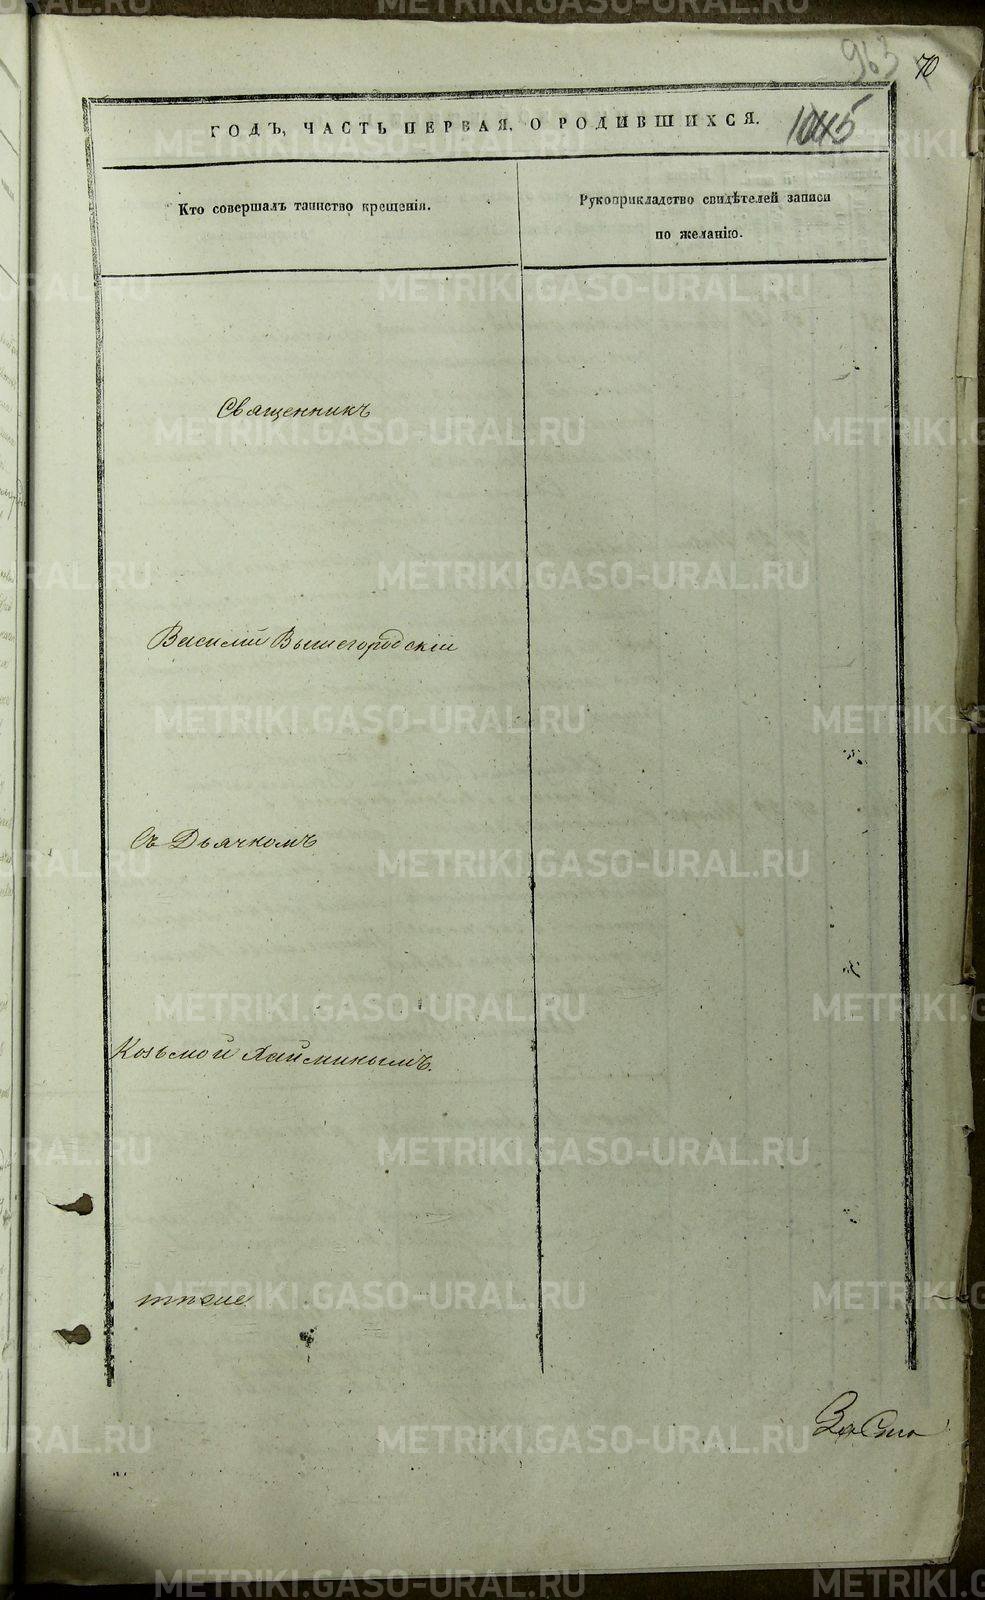 963 70
ГОДЪ, ЧАСТЬ ПЕРВАЯ, О РОДИВШИХСЯ. 1045
Кто совершалъ таинство крещенія.
Рукоприкладство свидѣтелей записи
по желанію.
Священникъ
Василій Вышегородскій
Съ Дьячкомъ
Козьмой
METRIKI.GASO-URAL.RU